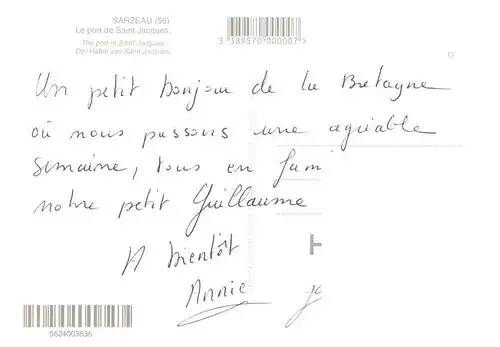 SARZEAU (56)
Le port de Saint Jacques.
The port of Saint Jacques.
Der Hafen von Saint Jacques.
3 389570 000007
Un petit bonjour de la Bretagne
où nous passons une agréable
semaine, tous en fami
notre petit Guillaume
A bientôt
Annie
5624003636